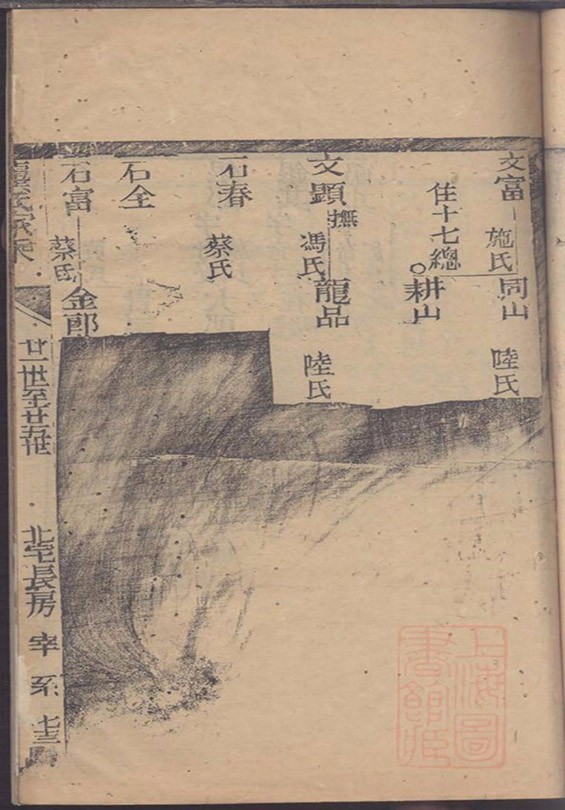 文富
施氏
同山
陸氏
住十七總
耕山
文顯
撫
馮氏
龍品
陸氏
石春
蔡氏
石全
石富
蔡氏
金郎
廿一世至廿五世
北宅長房
宰系
七三
上海圖書館藏